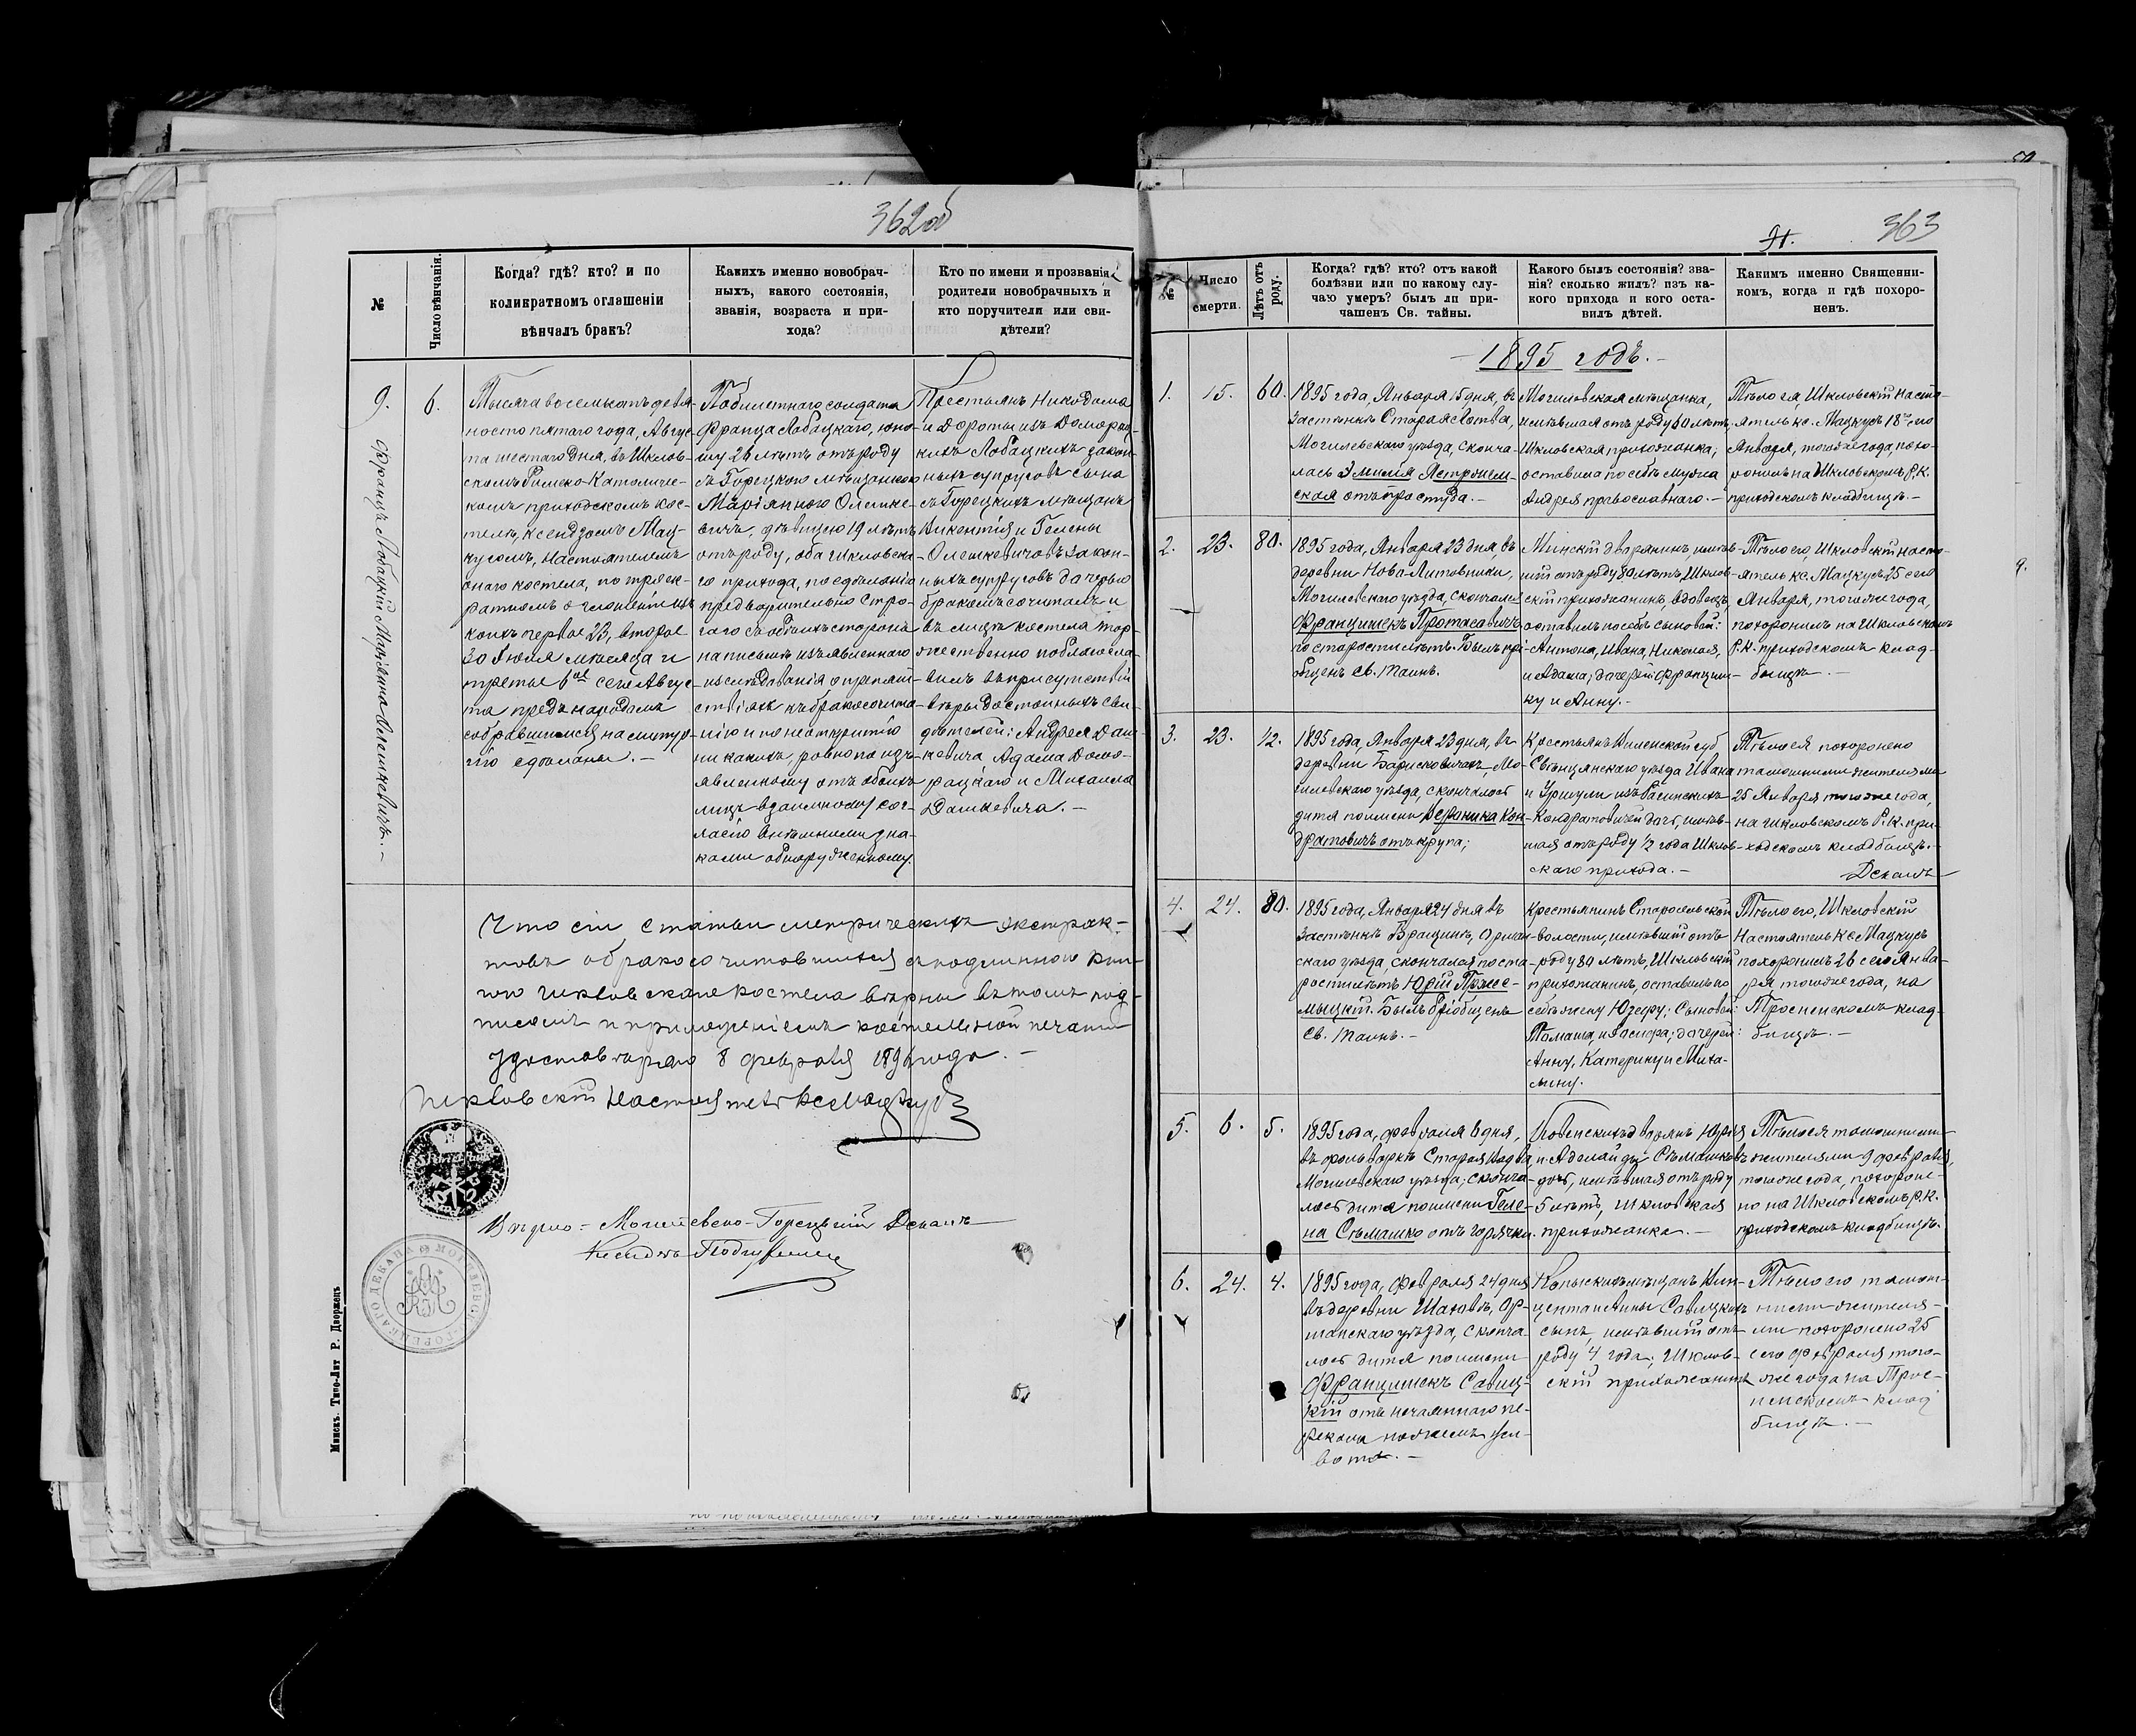 362об
№
Число вѣнчанія.
Когда? гдѣ? кто? и по
коликратномъ оглашеніи
вѣнчалъ бракъ?
Какихъ именно новобрач-
ныхъ, какого состоянія,
званія, возраста и при-
хода?
Кто по имени и прозванія
родители новобрачныхъ и
кто поручители или сви-
дѣтели?
9.
6.
Францъ Лобацкій Маріянна Олешкевичъ.-
Тысяча восемьсотъ девя-
носто пятаго года, Авгус-
та шестаго дня, въ Шклов-
скомъ Римско-Католичес-
комъ приходскомъ кос-
телѣ, Ксендзомъ Мац-
кусомъ, Настоятелемъ
онаго костела, по троек-
ратномъ оглашеніи, изъ
коихъ первое 23, второе
30 Іюля мѣсяца и
третье 6го сего Авгус-
та предъ народомъ
собравшимся на литур-
гію сдѣланы.-
солдата
Франца Лобацкаго, юно-
шу 26 лѣтъ отъ роду
съ Горецкою мѣщанкою
Маріянною Олешке-
вичъ, дѣвицею 19 лѣтъ
отъ роду, оба Шкловска-
го прихода, по сдѣланіи
предварительно стро-
гаго съ обѣихъ сторонъ
на письмѣ изъявленнаго
изслѣдованія о препят-
ствіяхъ къ бракосочета-
нію и по неоткрытію
никакихъ, равно по изъ-
явленному отъ обѣихъ
лицъ взаимному сог-
ласію внѣшними зна-
ками обнаруженному
Крестьянъ Никодима
и Дороты изъ Домарац-
кихъ Лобацкихъ закон-
ныхъ супруговъ сына
съ Горецкихъ мѣщанъ
Викентія и Гелены
Олешкевичовъ закон-
ныхъ супруговъ дочерью
бракомъ сочеталъ и
въ лицѣ костела тор-
жественно поблагосло-
вилъ въ присутствіи
вѣры достойныхъ сви-
дѣтелей: Андрея Даш-
кевича Адама Домо-
рацкаго и Михаила
Дашкевича.-
Что сіи статьи метрическихъ экстрак-
товъ о бракосочетавшихся съ подлинною кни-
гою Шкловскаго костела вѣрны въ томъ под-
писомъ и приложеніемъ костельной печати
удостовѣряю 8 февраля 1896 года.-
Шкловскій Настоятель Кс Мацкусъ
Вѣрно-Могилевско-Горецкій Деканъ
Ксендзъ
Минскъ. Типо-Лит Р. Дворжецъ
363
№
Число
смерти.
Лѣтъ отъ
роду.
Когда? гдѣ? кто? отъ какой
болѣзни или по какому слу-
чаю умеръ? былъ ли при-
чащенъ Св. тайны.
Какого былъ состоянія? зва-
нія? сколько жилъ? изъ ка-
кого прихода и кого оста-
вилъ дѣтей.
Какимъ именно Священни-
комъ, когда и гдѣ похоро-
ненъ.
-1895 годъ.-
1.
15.
60.
1895 года, Января 15 дня, въ
застѣнкѣ Старая Слотва,
Могилевскаго уѣзда, сконча-
лась Эмилія Ястржем-
ская отъ простуда.-
Могилевская мѣщанка,
имѣвшая отъ роду 60 лѣтъ,
Шкловская прихожанка;
оставила по себѣ мужа
Андрея православнаго.-
Тѣло ея, Шкловскій Насто-
ятель кс. Мацкусъ 18го сего
Января, того же года, похо-
ронилъ на Шкловскомъ Р. К.
приходскомъ кладбищѣ.-
2.
23.
80.
1895 года, Января 23 дня, въ
деревни Ново-Литовники,
Могилевскаго уѣзда, скончался
Францишекъ Протасевичъ
по старости лѣтъ. Былъ прі-
общенъ Св. Таинъ.
Минскій дворянинъ, имѣв-
шій отъ роду 80 лѣтъ, Шклов-
скій прихожанинъ, вдовецъ,
оставилъ по себѣ сыновей:
Антона, Ивана, Николая,
и Адама; дочерей: Францишку
и Анну.-
Тѣло его, Шкловскій насто-
ятель кс. Мацкусъ 25 сего
Января, того же года,
похоронилъ на Шкловскомъ
Р. К. приходскомъ клад-
бищѣ.-
3.
23.
1/2.
1895 года, Января 23 дня, въ
деревни Барисковичахъ, Мо-
гилевскаго уѣзда, скончалось
дитя по имени Вероника Кон-
дратовичъ отъ крупа;
Крестьянъ Виленской губ
Свѣнцянскаго уѣзда Ивана
и Уршули изъ
Кондратовичей дочь, имѣв-
шая отъ роду 1/2 года Шклов-
скаго прихода.-
Тѣло ея похоронено
тамошними жителями
25 Января того же года,
на Шкловскомъ Р. К. при-
ходскомъ кладбищѣ.-
Деканъ
4.
24.
80.
1895 года, Января 24 дня въ
застѣнкѣ Вращинъ, Оршан-
скаго уѣзда, скончался по ста-
рости лѣтъ Юрій Прже-
мыцкій. Былъ пріобщенъ
Св. Таинъ.-
Крестьянинъ Старосельской
волости, имѣвшій отъ
роду 80 лѣтъ, Шкловскій
прихожанинъ, оставилъ по
себѣ жену Юзефу; сыновей:
Томаша, и Іосифа; дочерей:
Анну, Катерину и Миха-
лину.
Тѣло его, Шкловскій
Настоятель Кс Мацкусъ
похоронилъ 26 сего Янва-
ря того же года, на
Троспенскомъ клад-
бищѣ.-
5.
6.
5.
1895 года, февраля 6 дня,
въ фольваркѣ Старая Водва
Могилевскаго уѣзда; сконча-
лось дитя по имени Геле-
на Сѣмашко отъ горячки.
Ковенскихъ дворянъ Юрія
и Аделаиды Сѣмашковъ
дочь, имѣвшая отъ роду
5 лѣтъ, Шкловская
прихожанка.-
Тѣло ея тамошними
жителями 9 февраля,
того же года, похороне-
но на Шкловскомъ Р. К.
приходскомъ кладбищѣ.
6.
24.
4.
1895 года, февраля 24 дня
въ деревни Шаховѣ, Ор-
шанскаго уѣзда, сконча-
лось дитя по имени
Францишекъ Савиц-
кій отъ нечаяннаго пе-
реколa ножемъ жи-
вота.-
Копыскихъ мѣщанъ Вин-
цента и Анны Савицкихъ
сынъ, имѣвшій отъ
роду 4 года; Шклов-
скій прихожанинъ
Тѣло его тамош-
ними жителя-
ми похоронено 25
сего февраля того-
же года на Трос-
пенскомъ клад
бищѣ.-